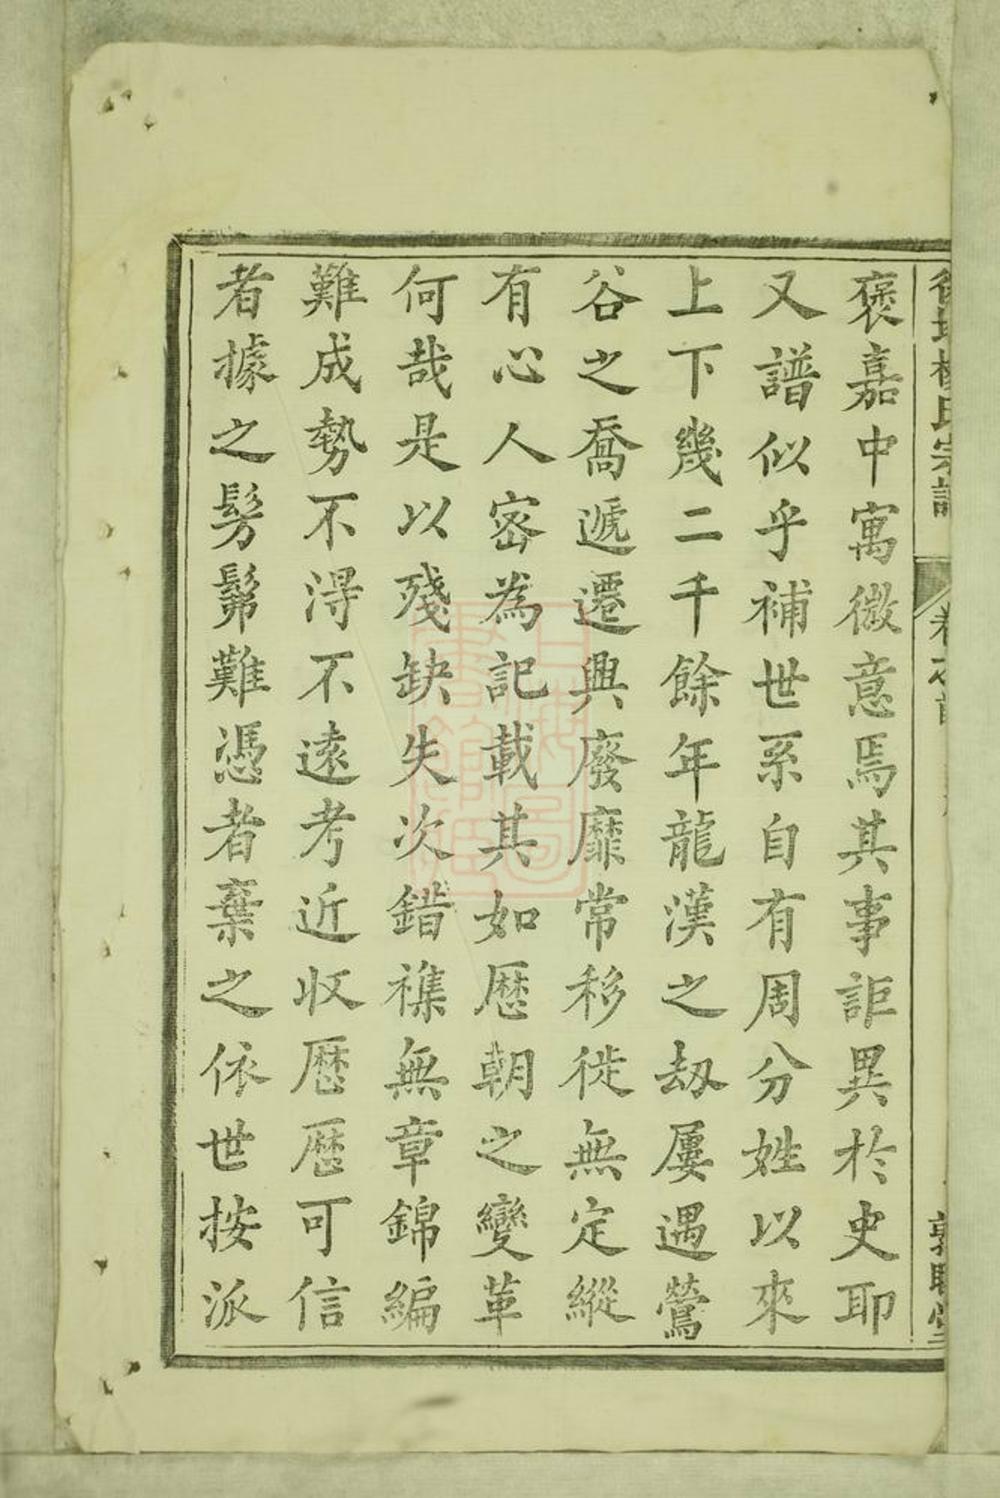 褒嘉中寓微意焉其事詎異於史耶
又譜似乎補世系自有周分姓以來
上下幾二千餘年龍漢之刼屢遇鶯
谷之喬遞遷興廢靡常移徙無定縱
有心人密為記載其如歴朝之變革
何哉是以殘缺失次錯襍無章錦編
難成勢不淂不遠考近収歴歴可信
者據之髣髴難憑者棄之依世按派